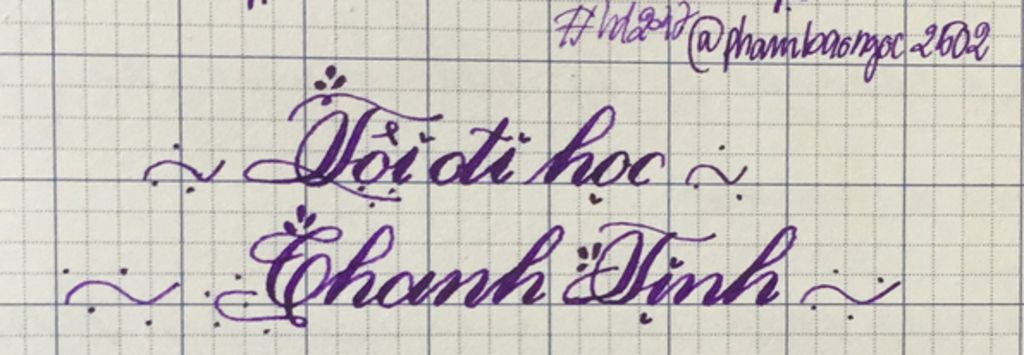 #hd2017 @phambaongoc2602
Tôi đi học
Thanh Tịnh